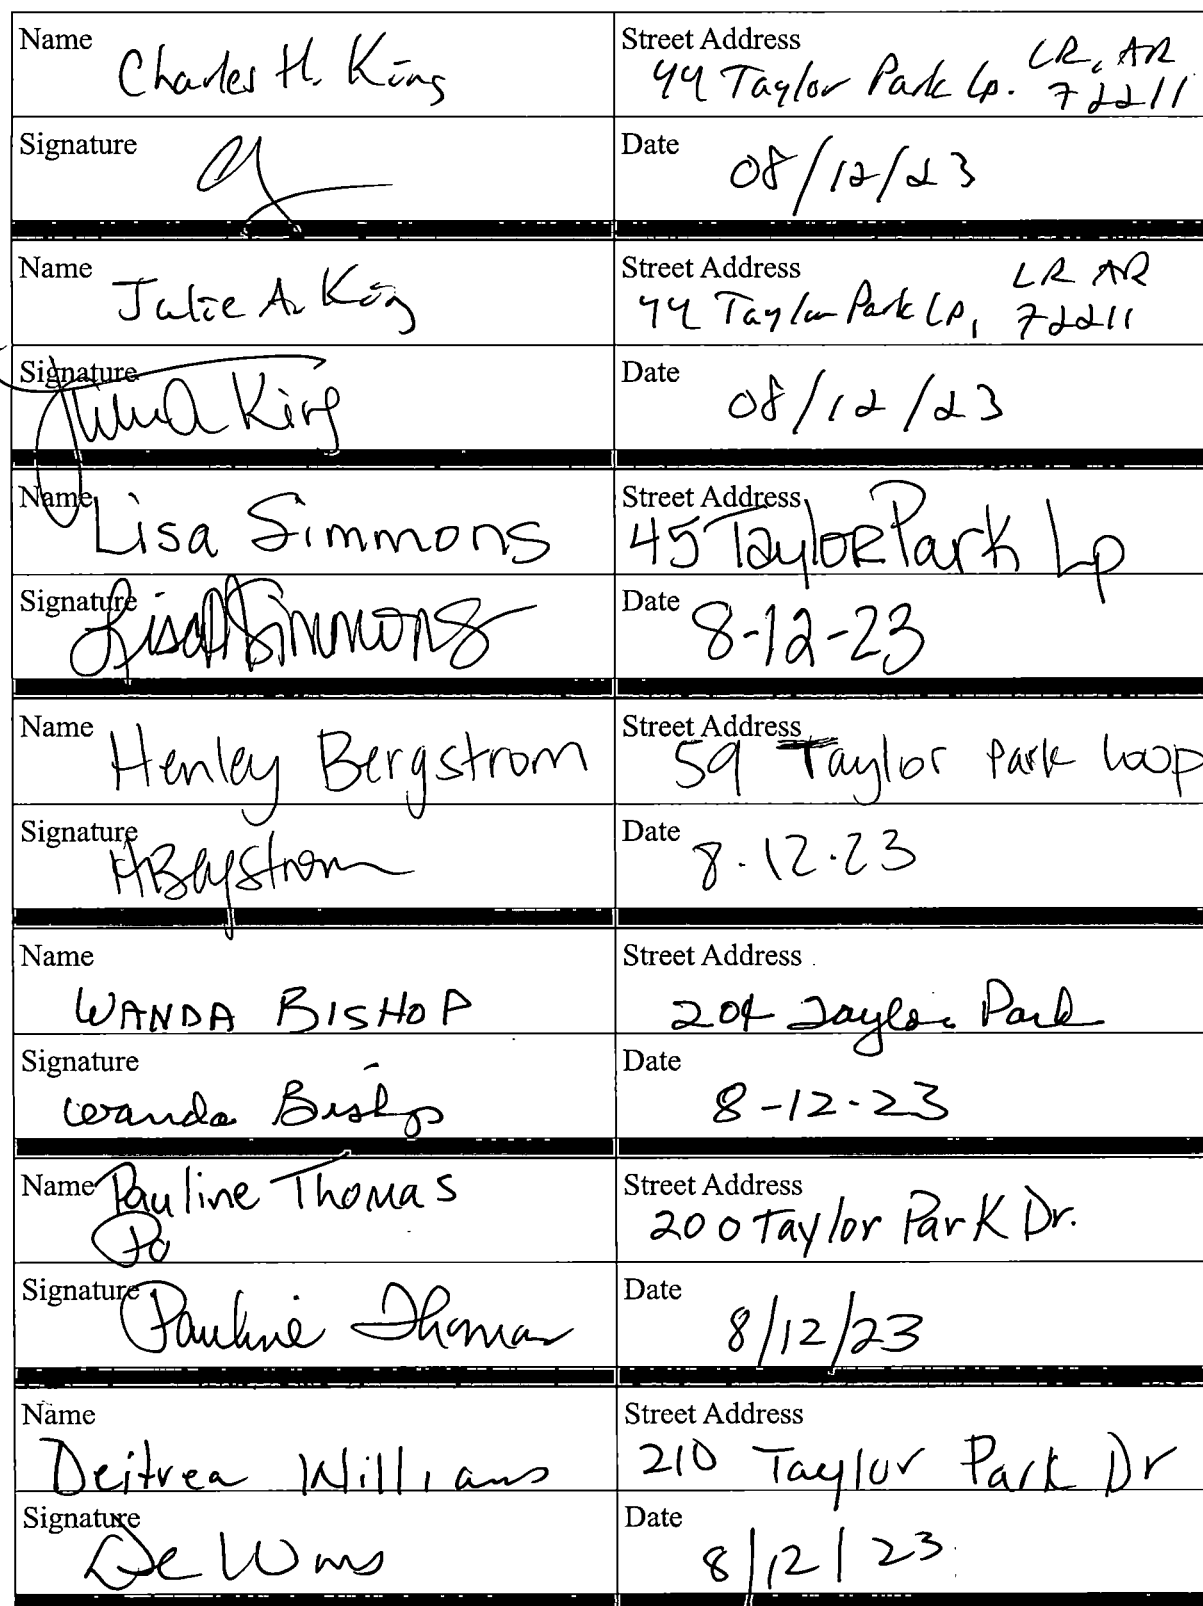 Name Charles H. King
Street Address LR, AR
44 Taylor Park Lp. 72211
Signature
Date 08/12/23
Name Julie A. King
Street Address LR AR
44 Taylor Park Lp, 72211
Signature King
Date 08/12/23
Name Lisa Simmons
Street Address
45 Taylor Park Lp
Signature Lisa Simmons
Date 8-12-23
Name Henley Bergstrom
Street Address
59 Taylor Park Loop
Signature HBergstrom
Date 8.12.23
Name
WANDA BISHOP
Street Address
204 Taylor Park
Signature
Wanda Bishop
Date
8-12-23
Name Pauline Thomas
Street Address
200 Taylor Park Dr.
Signature Pauline Thomas
Date
8/12/23
Name
Deitrea Williams
Street Address
210 Taylor Park Dr
Signature
De Wms
Date
8/12/23